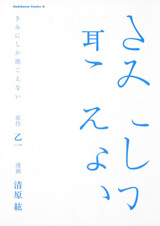 きみにしか
聞こえない
Kadokawa Comics A
きみにしか聞こえない
原作 乙一
漫画 清原紘